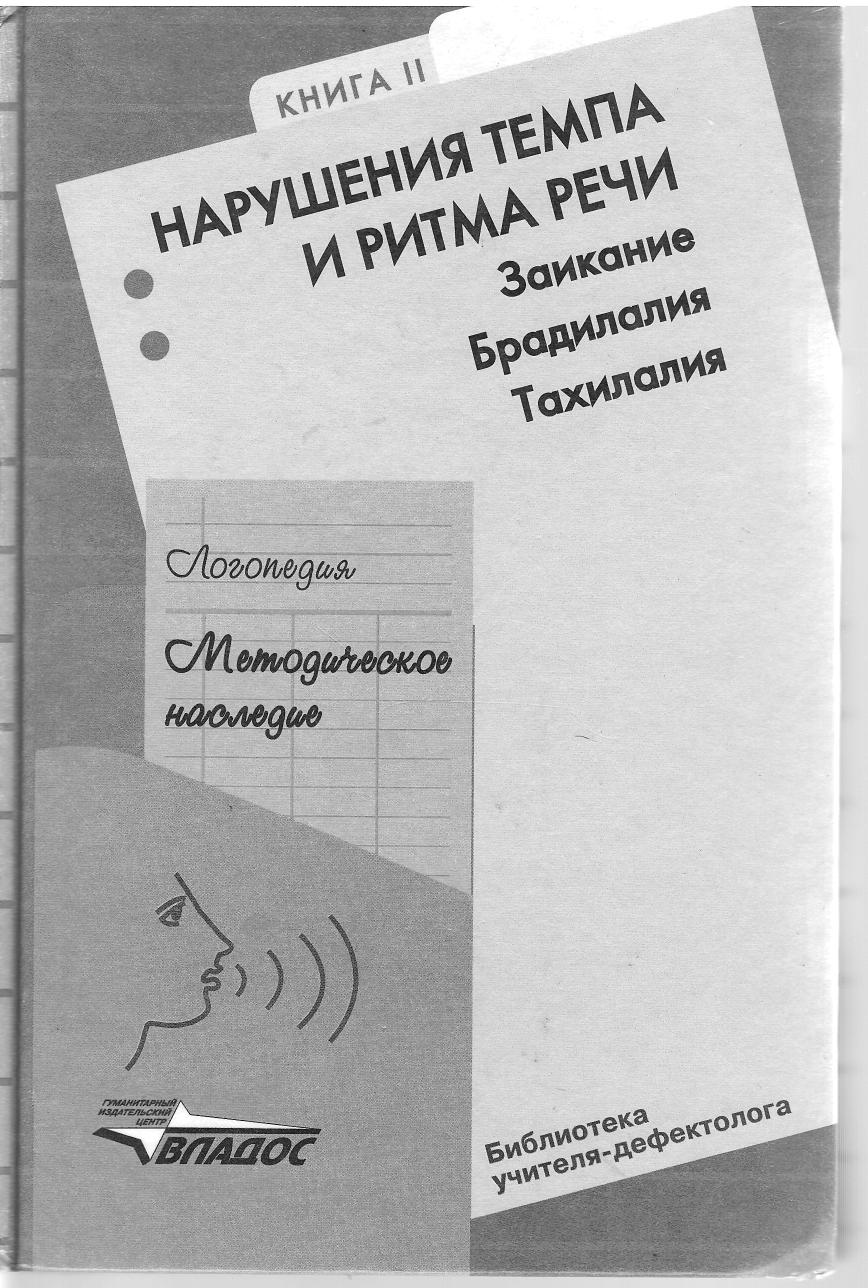 КНИГА II
НАРУШЕНИЯ ТЕМПА
И РИТМА РЕЧИ
Заикание
Брадилалия
Тахилалия
Логопедия
Методическое
наследие
ГУМАНИТАРНЫЙ
ИЗДАТЕЛЬСКИЙ
ЦЕНТР
ВЛАДОС
Библиотека
учителя-дефектолога